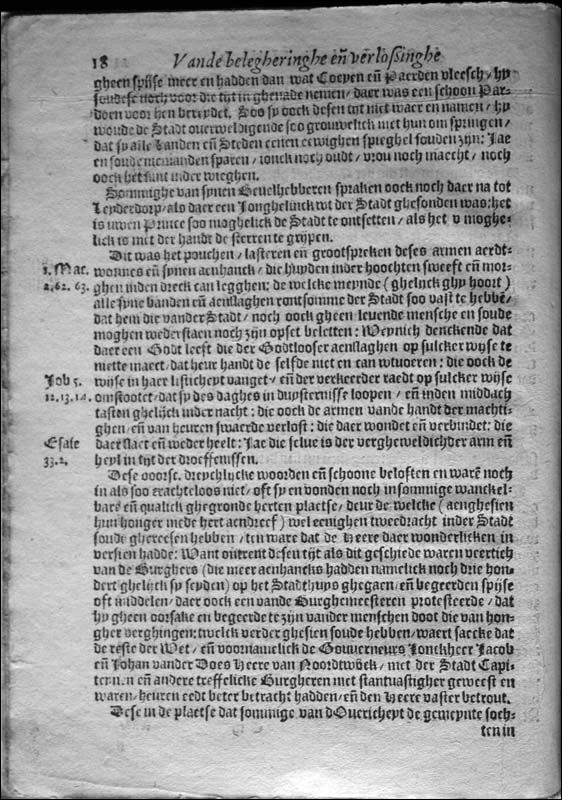 18 Vande belegheringhe eñ verlossinghe
gheen spijse meer en hadden dan wat Coeyen eñ Paerden vleesch / hy
soudese noch voor die tijt in ghenade nemen / daer was een schoon Par-
doen voor hen bereydet. Soo sy oock desen tijt niet waer en namen / hy
woude de Stadt overweldigende soo grouwelick met hun om springen /
dat sy alle Landen eñ Steden eenen eewighen spieghel souden zijn: Jae
en soude niemanden sparen / ionck noch oudt / vrou noch maecht / noch
oock het kint inder wieghen.
Sommighe van synen Bevelhebberen spraken oock noch daer na tot
Leyderdorp / als daer een Jonghelinck wt der Stadt ghesonden was: het
is uwen Prince soo moghelick de Stadt te ontsetten / als het v moghe-
lick is met der handt de sterren te grijpen.
Dit was het pouchen / lasteren eñ grootspreken deses armen aerdt-
1. Mac. wormes eñ synen aenhanck / die huyden inder hoochten sweeft eñ mor-
2. 62. 63. ghen inden dreck can legghen: de welcke meynde (ghelijck ghy hoort)
alle syne banden eñ aenslaghen rontsomme der Stadt soo vast te hebbē /
dat hem die vander Stadt / noch oock gheen levende mensche en soude
moghen wederstaen noch zijn opset beletten: Weynich denckende dat
daer een Godt leeft die der Godtlooser aenslaghen op sulcker wijse te
niette maect / dat heur handt de selfde niet en can wtvoeren: die oock de
Job 5. wijse in haer listicheyt vanget / eñ der verkeerder raedt op sulcker wijse
12. 13. 14. omstootet / dat sy des daghes in duysternisse loopen / eñ inden middach
tasten ghelijck inder nacht: die oock de armen vande handt der machti-
ghen / eñ van heuren swaerde verlost: die daer wondet eñ verbindet: die
Esaie daer slaet eñ weder heelt: Jae die selve is der vergheweldichder arm eñ
33. 2. heyl in tijt der droeffenissen.
Dese voorsc. dreychlijcke woorden eñ schoone beloften en warē noch
in als soo crachteloos niet / oft sy en vonden noch in sommige wanckel-
bare eñ qualick ghegronde herten plaetse / deur de welcke (aenghesien
hun honger mede hert aendreef) wel eenighen tweedracht inder Stadt
soude gheresen hebben / ten ware dat de Heere daer wonderlicken in
versien hadde: Want ontrent desen tijt als dit geschiede waren veertich
van de Burghers (die meer aenhancks hadden namelick noch drie hon-
dert ghelijck sy seyden) op het Stadthuys ghegaen / eñ begeerden spijse
oft middelen / daer oock een vande Burghemeesteren protesteerde / dat
hy gheen oorsake en begeerde te zijn vander menschen doot die van hon-
gher verghingen: twelck verder ghesien soude hebben / waert saecke dat
de reste der Wet / eñ voornamelick de Gouverneurs Jonckheer Jacob
eñ Johan vander Does Heere van Noordtwijck / met der Stadt Capi-
teynen eñ andere treffelicke Burgheren niet stantvastigher geweest en
waren / heuren eedt beter betracht hadden / eñ den Heere vaster betrout.
Dese in de plaetse dat sommige van d'Overicheyt de gemeynte soch-
ten in